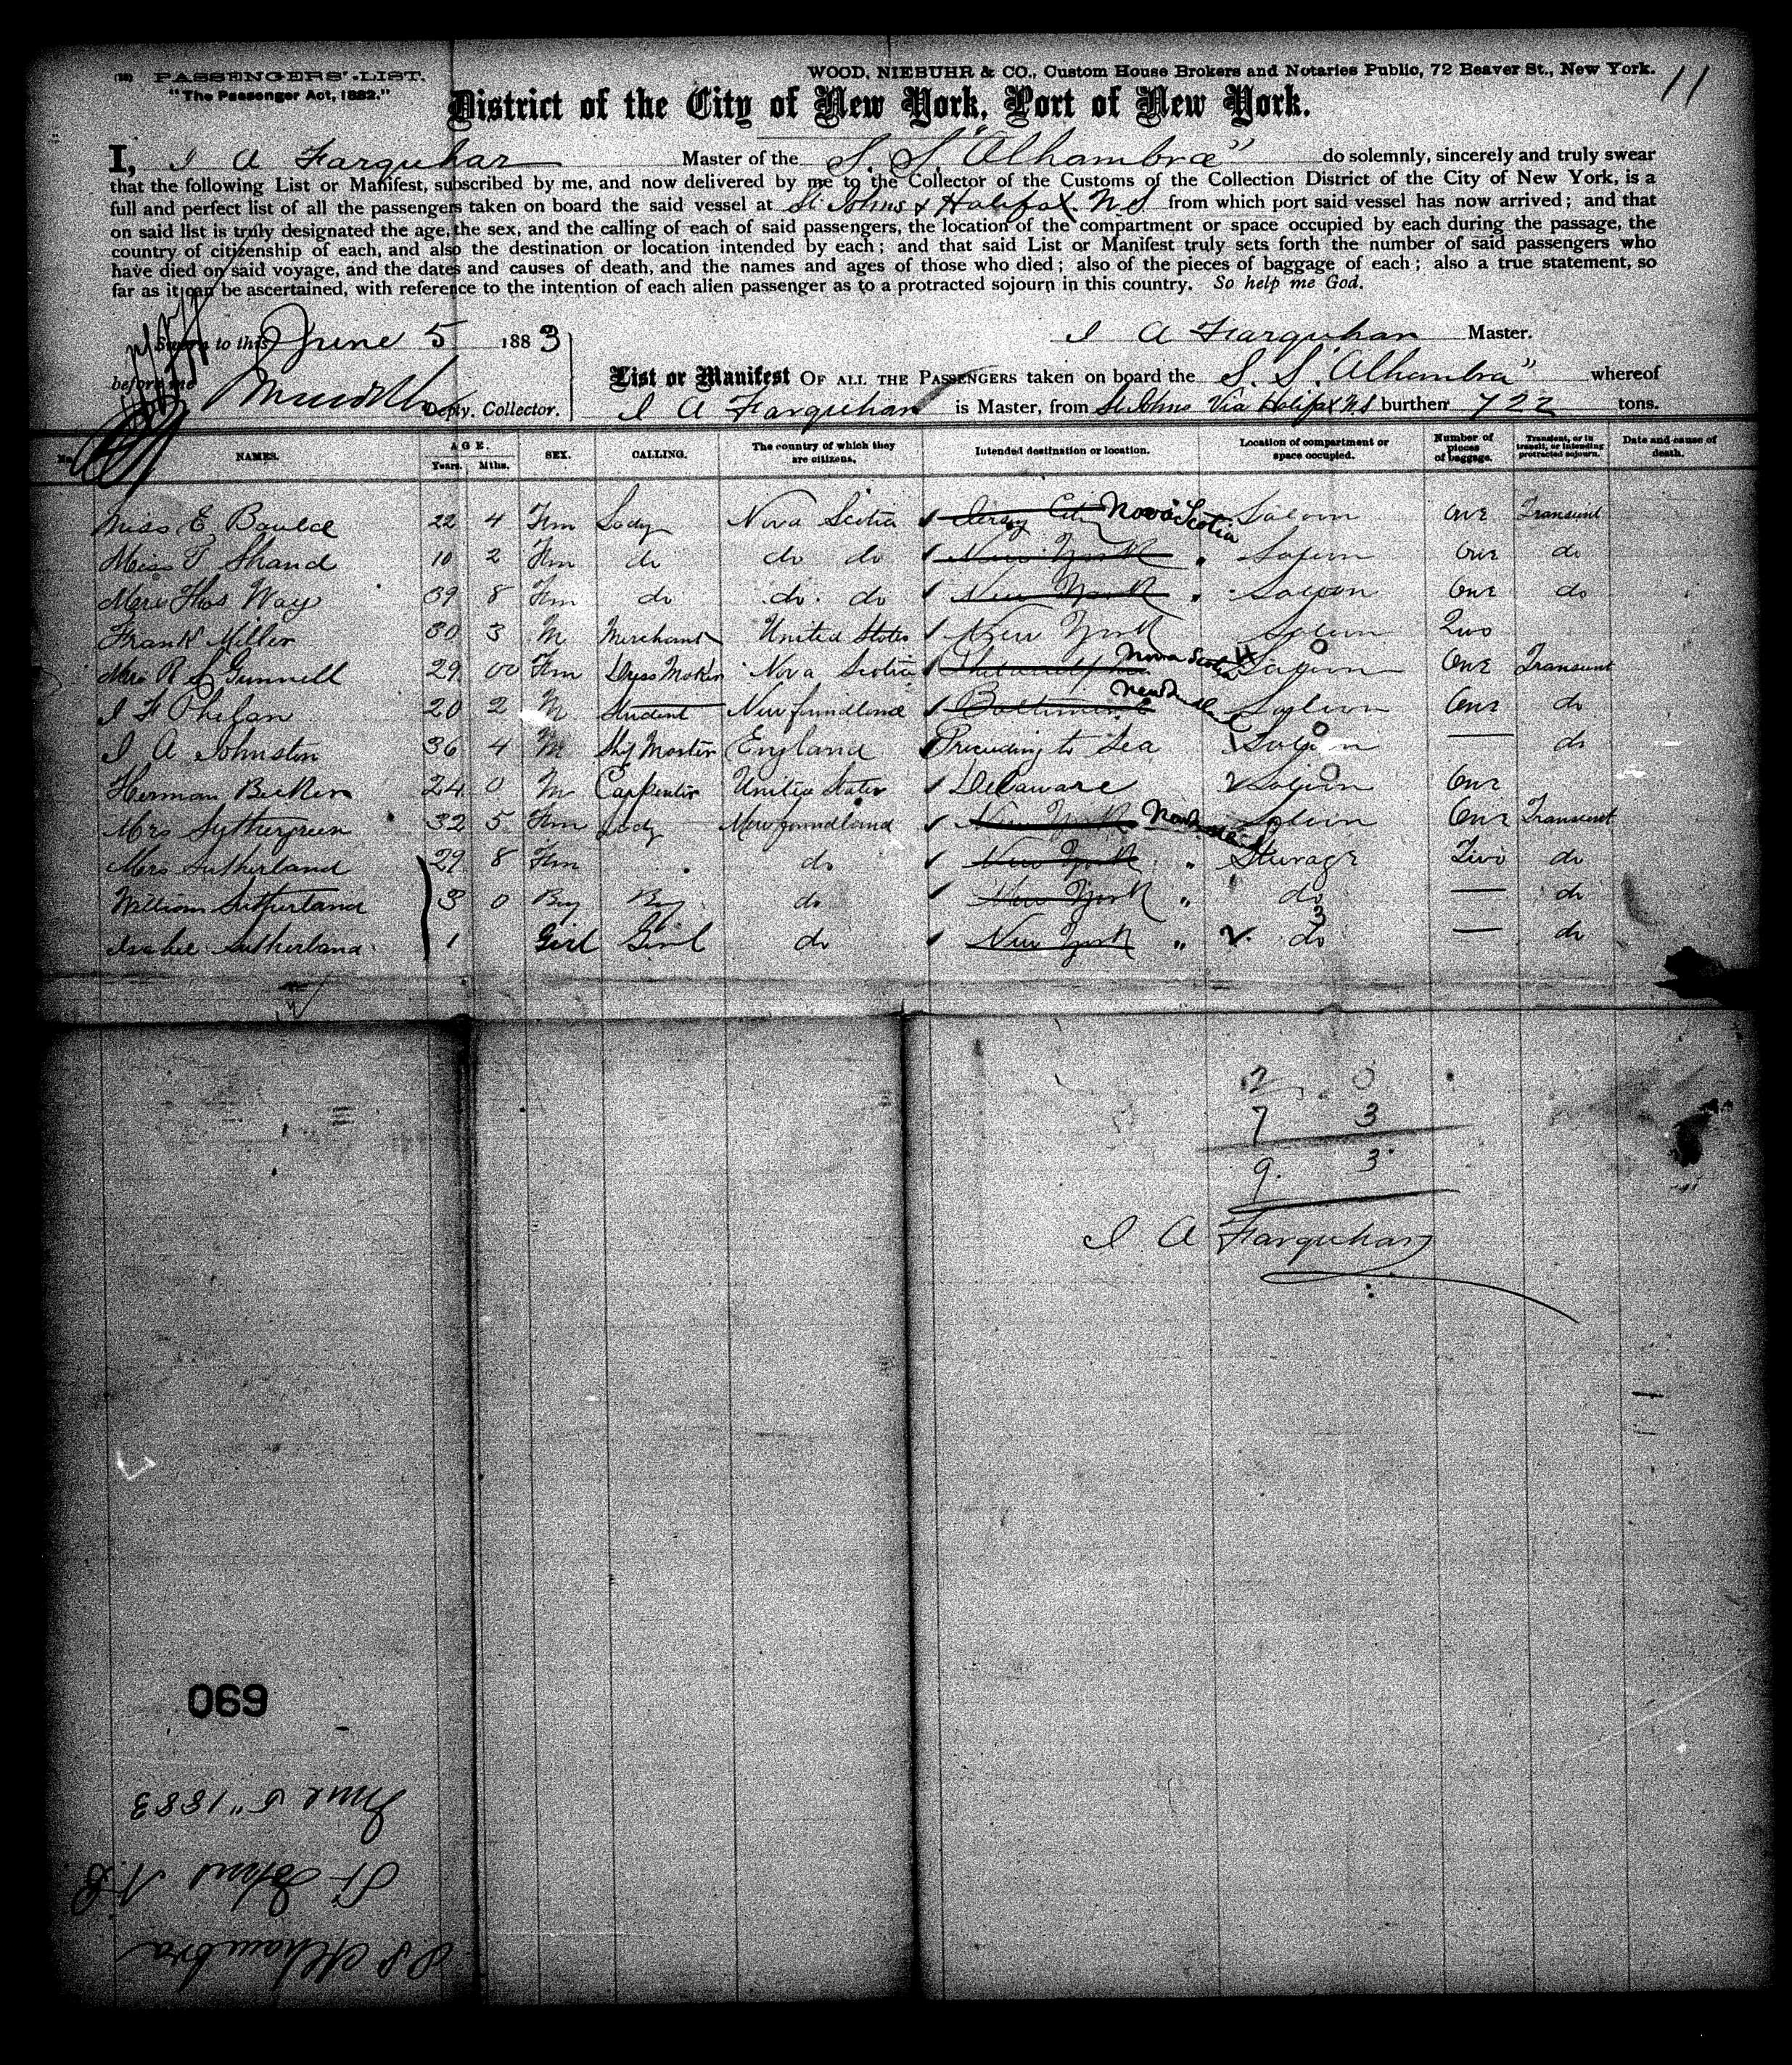 (10) PASSENGERS' LIST.
"The Passenger Act, 1882."
WOOD, NIEBUHR & CO., Custom House Brokers and Notaries Public, 72 Beaver St., New York.
11
District of the City of New York, Port of New York.
I, I A Farquhar Master of the S. S. "Alhambra" do solemnly, sincerely and truly swear
that the following List or Manifest, subscribed by me, and now delivered by me to the Collector of the Customs of the Collection District of the City of New York, is a
full and perfect list of all the passengers taken on board the said vessel at St. Johns & Halifax N.S from which port said vessel has now arrived; and that
on said list is truly designated the age, the sex, and the calling of each of said passengers, the location of the compartment or space occupied by each during the passage, the
country of citizenship of each, and also the destination or location intended by each; and that said List or Manifest truly sets forth the number of said passengers who
have died on said voyage, and the dates and causes of death, and the names and ages of those who died; also of the pieces of baggage of each; also a true statement, so
far as it can be ascertained, with reference to the intention of each alien passenger as to a protracted sojourn in this country. So help me God.
Sworn to this June 5 1883
I A Farquhar Master.
before me
Depty. Collector.
List or Manifest OF ALL THE PASSENGERS taken on board the S. S. "Alhambra" whereof
I A Farquhar is Master, from St Johns Via Halifax NS burthen 722 tons.
No. NAMES. AGE. Years. Mths. SEX. CALLING. The country of which they are citizens. Intended destination or location. Location of compartment or space occupied. Number of pieces of baggage. Transient, or in transit, or intending protracted sojourn. Date and cause of death.
Miss E 22 4 Fem Lady Nova Scotia Jersey City Nova Scotia Saloon One Transient
Miss T Shand 10 2 Fem do do do New York " Saloon One do
Mrs Thos Way 39 8 Fem do do do New York " Saloon One do
Frank Miller 30 3 M Merchant United States New York Saloon Two
Mrs R S Gunnell 29 00 Fem Dress Maker Nova Scotia Philadelphia Nova Scotia Saloon One Transient
I F Phelan 20 2 M Student Newfoundland Baltimore Saloon One do
I A Johnston 36 4 M Ship Master England Proceeding to Sea Saloon — do
Herman Becker 24 0 M Carpenter United States Delaware Saloon One
Mrs 32 5 Fem Lady Newfoundland New York Saloon One Transient
Mrs Sutherland 29 8 Fem do New York " Steerage Two do
William Sutherland 3 0 Boy Boy do New York " do — do
Isabel Sutherland 1 Girl Girl do New York " do — do
2 0
7 3
9 3
I A Farquhar
069
June 5" 1883
St Johns N.F
S S Alhambra